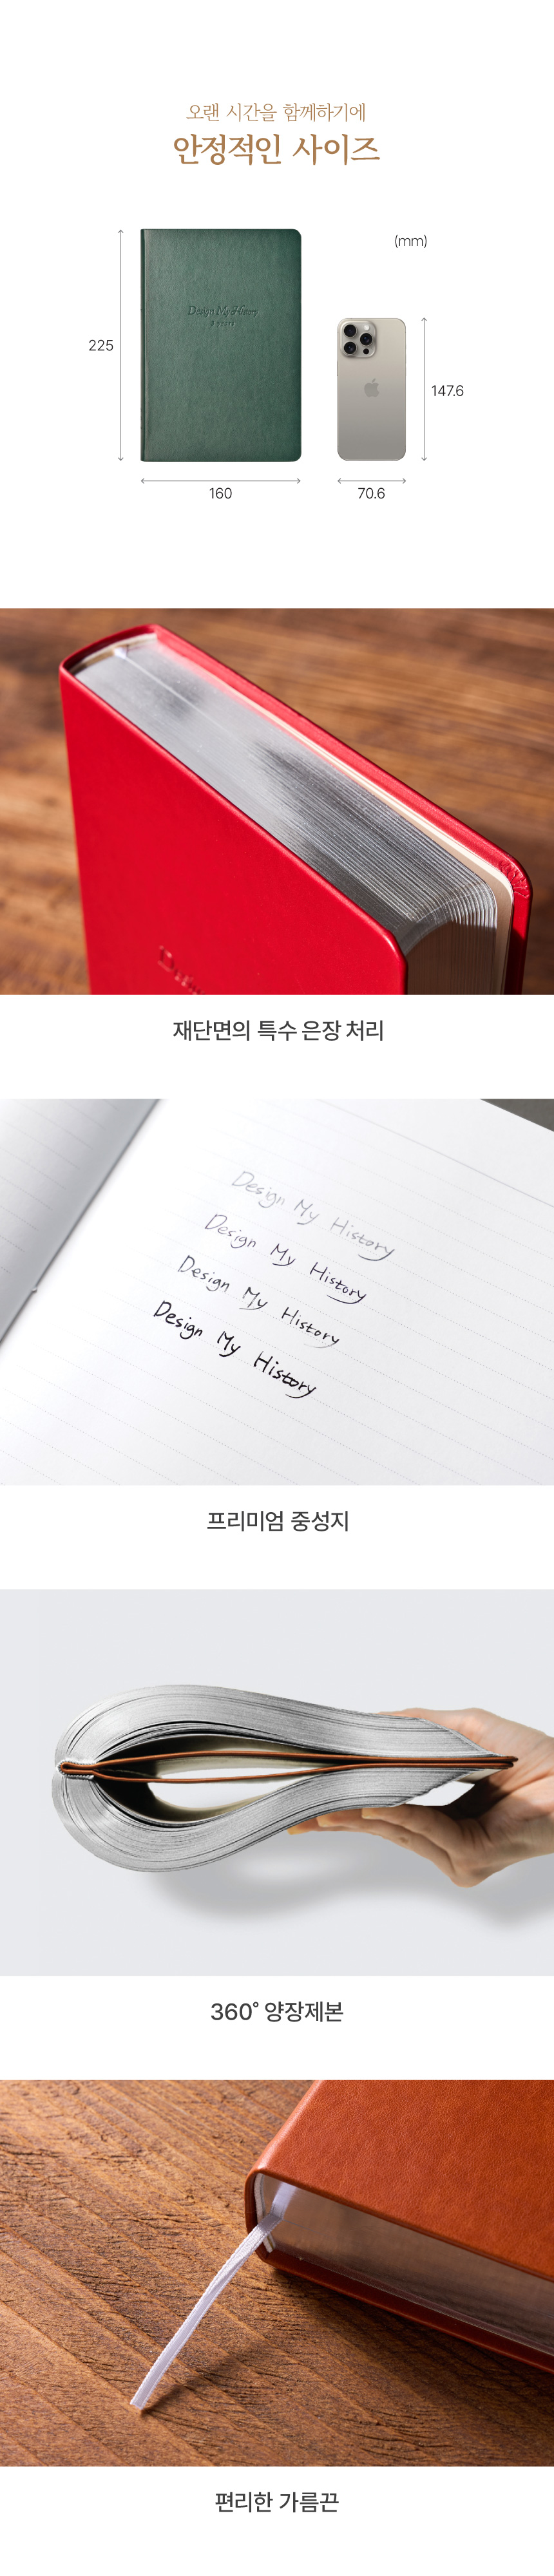 오랜 시간을 함께하기에
안정적인 사이즈
(mm)
Design My History
5 YEARS
225
147.6
160
70.6
재단면의 특수 은장 처리
Design My History
Design My History
Design My History
Design My History
프리미엄 중성지
360° 양장제본
편리한 가름끈